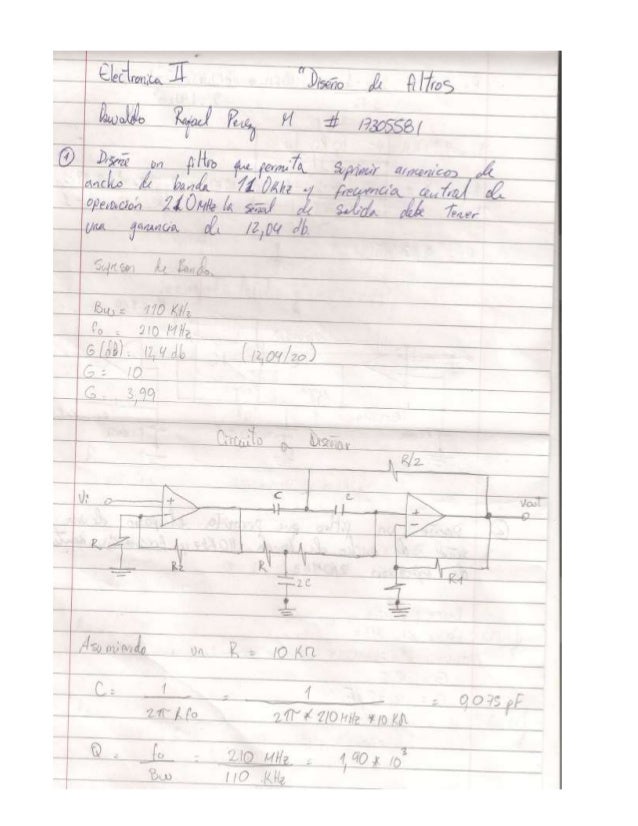 Electronica II "Diseño de filtros
Rafael Perez M # 17305581
① Diseñe un filtro que permita suprimir armonicos de
ancho de banda 110Khz y frecuencia central de
operación 210MHz la señal de salida debe tener
una ganancia de 12,04 db.
Supresor de Banda
Bw = 110 KHz
fo = 210 MHz
G(db): 12,4 db (12,04/20)
G = 10
G. 3,99
Circuito a Diseñar
R/2
C C
Vi + - + - Vout
R R2 R R1
2C
Asumiendo un R = 10 KΩ
C = 1 / 2π R fo = 1 / 2π * 210 MHz * 10 KΩ = 0,075 pF
Q = fo / Bw = 210 MHz / 110 KHz = 1,90 * 10³